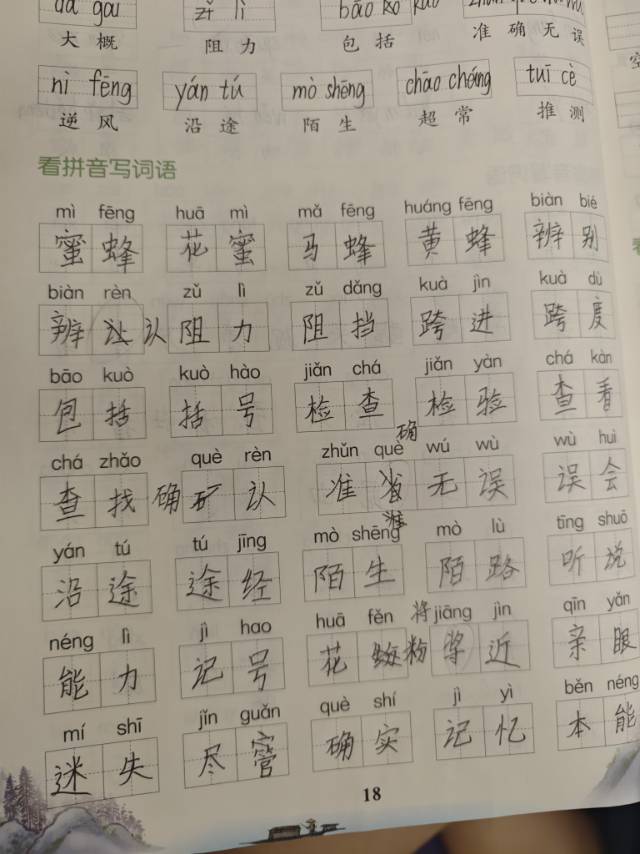 zǔ lì bāo kuò
大概 阻力 包括 准确无误
nì fēng yán tú mò shēng chāo cháng tuī cè
逆风 沿途 陌生 超常 推测
看拼音写词语
mì fēng huā mì mǎ fēng huáng fēng biàn bié
蜜蜂 花蜜 马蜂 黄蜂 辨别
biàn rèn zǔ lì zǔ dǎng kuà jìn kuà dù
辨认 阻力 阻挡 跨进 跨度
bāo kuò kuò hào jiǎn chá jiǎn yàn chá kàn
包括 括号 检查 检验 查看
chá zhǎo què rèn zhǔn què wú wù wù huì
查找 确认 准确无误 误会
yán tú tú jīng mò shēng mò lù tīng shuō
沿途 途经 陌生 陌路 听说
néng lì jì hao huā fěn jiāng jìn qīn yǎn
能力 记号 花粉 将近 亲眼
mí shī jǐn guǎn què shí jì yì běn néng
迷失 尽管 确实 记忆 本能
18